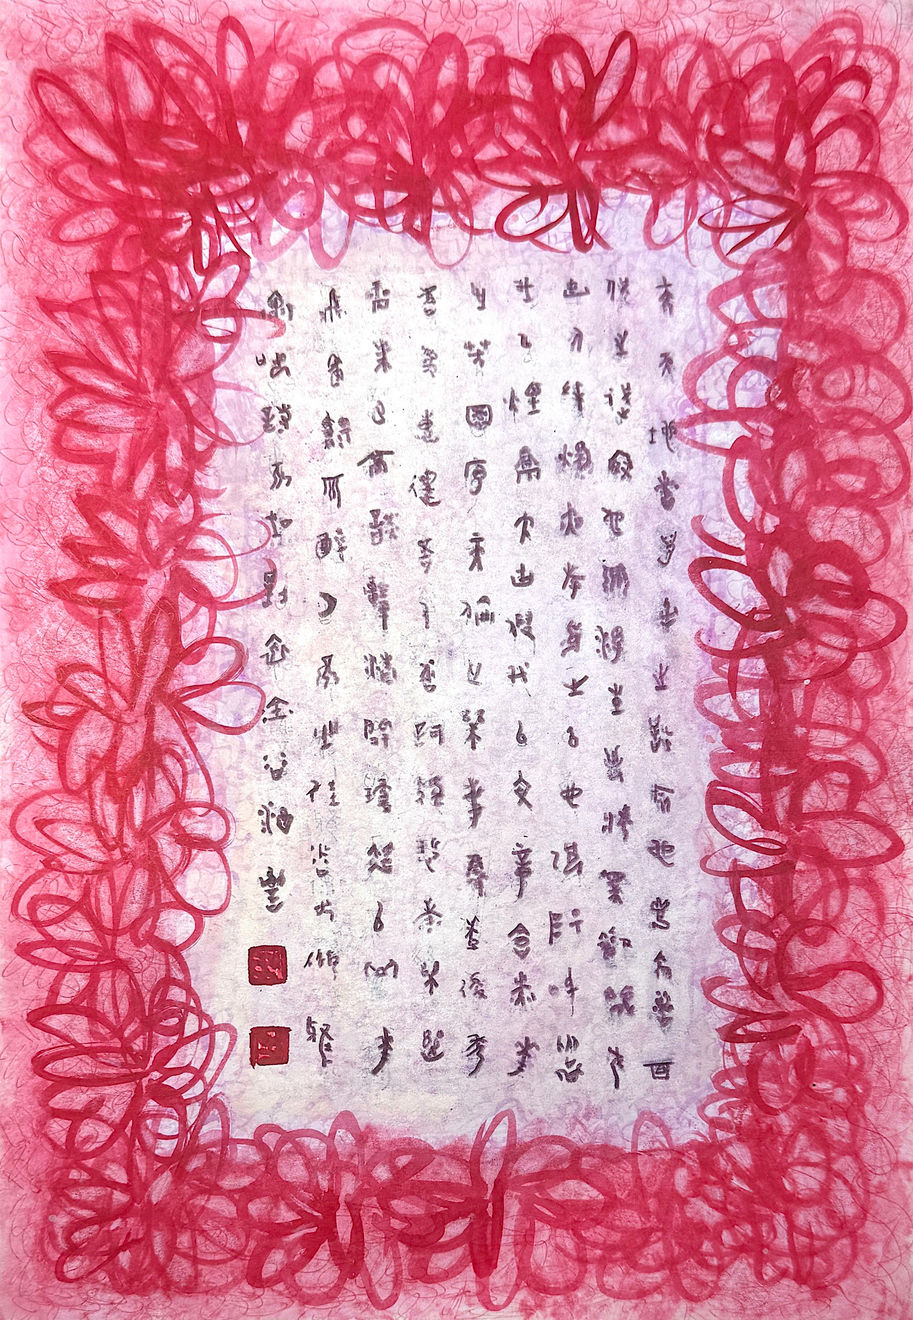 夫天地者萬物之逆旅也光陰者百
代之過客也而浮生若夢為歡幾何
古人秉燭夜遊良有以也況陽春召
我以煙景大塊假我以文章會桃花
之芳園序天倫之樂事群季俊秀
皆為惠連吾人詠歌獨慚康樂幽
賞未已高談轉清開瓊筵以坐花
飛羽觴而醉月不有佳詠何伸雅
懷如詩不成罰依金谷酒數